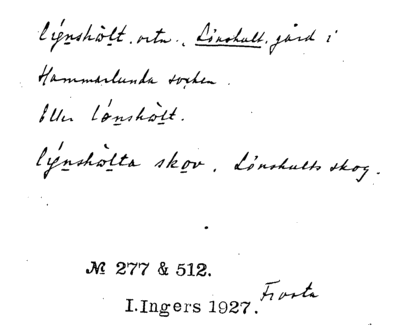 lýnshòlt. ortn., Lönshult, gård i
Hammarlunda socken.
Eller lǿnshòlt.
lýnshòlta skov, Lönshults skog.
№ 277 & 512.
I. Ingers 1927. Frosta